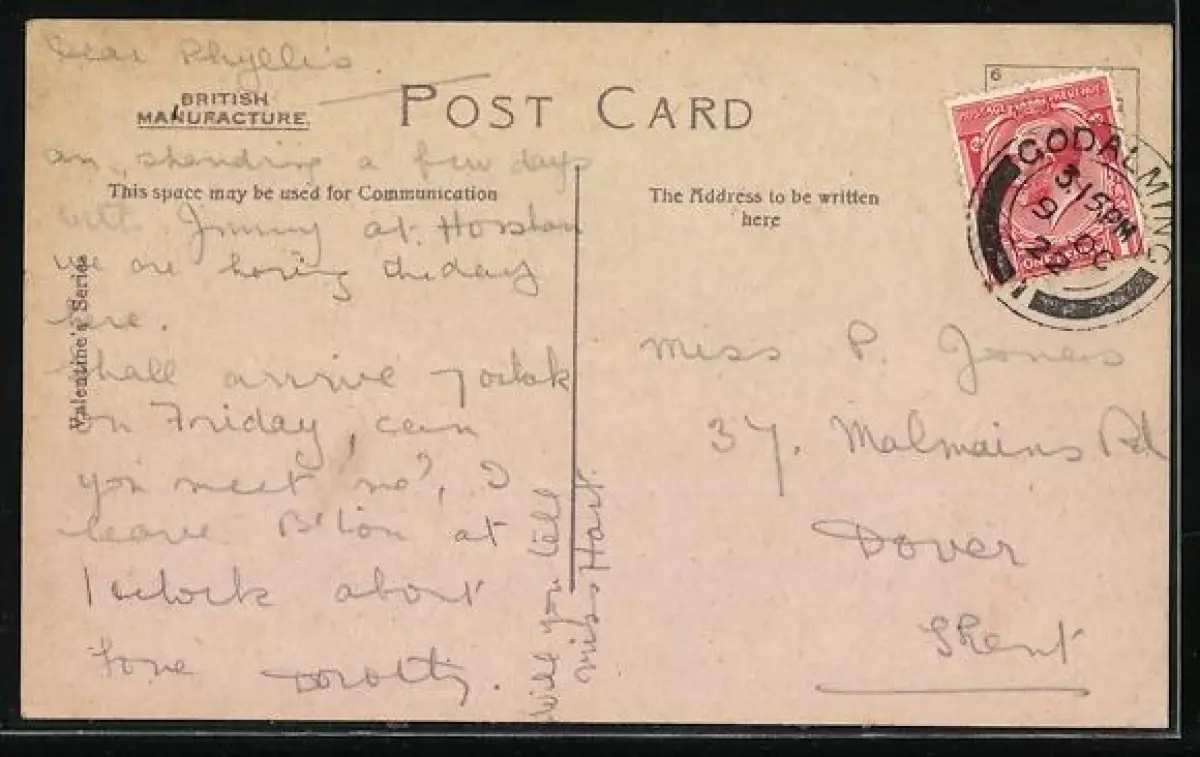 Dear Phyllis.
BRITISH
MANUFACTURE.
POST CARD
am spending a few days
This space may be used for Communication
with Jimmy at Horsham
we are having the day
here.
Shall arrive 7 oclock
on Friday, can
you meet me?, I
leave B'ton at
1 oclock about
love Dorothy.
Will you tell
miss Hart
Valentine's Series
The Address to be written
here
6
POSTAGE REVENUE
ONE PENNY
GODALMING
3.15 PM
9 OC
22
1
Miss P. Jones
37. Malmains Rd
Dover
Kent